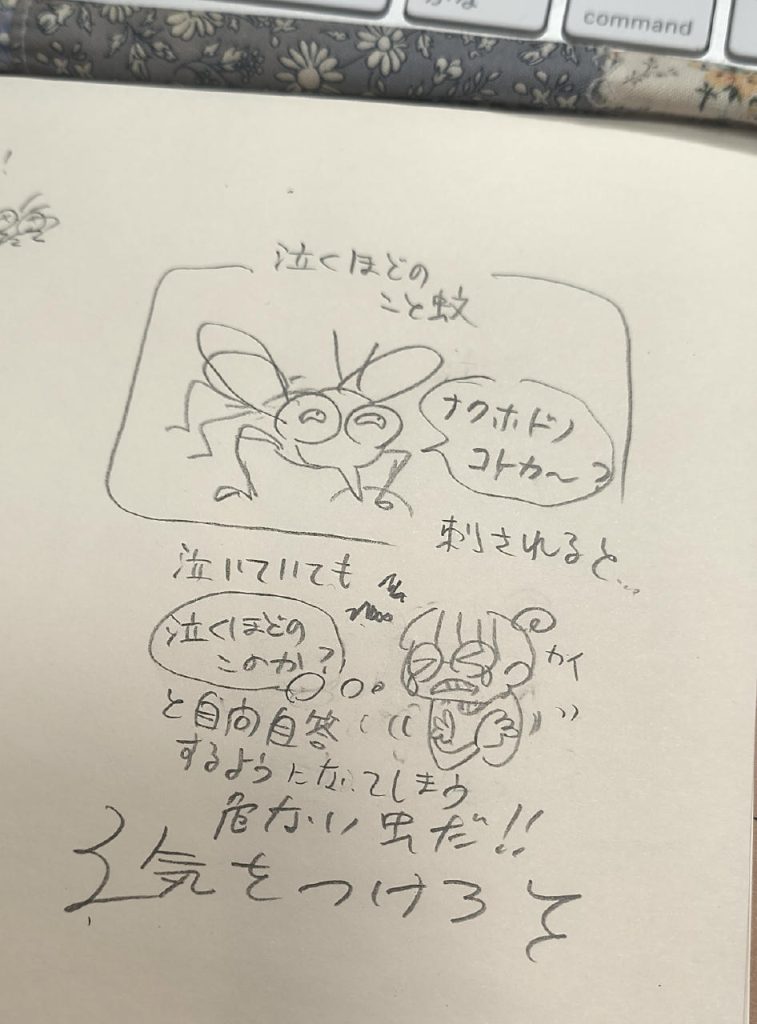 command
!
泣くほどの
こと蚊
ナクホドノ
コトカ〜?
刺されると…
泣いていても
泣くほどの
このか?
カイ
と自問自答
するようになってしまう
危ない虫だ!!
気をつけろ